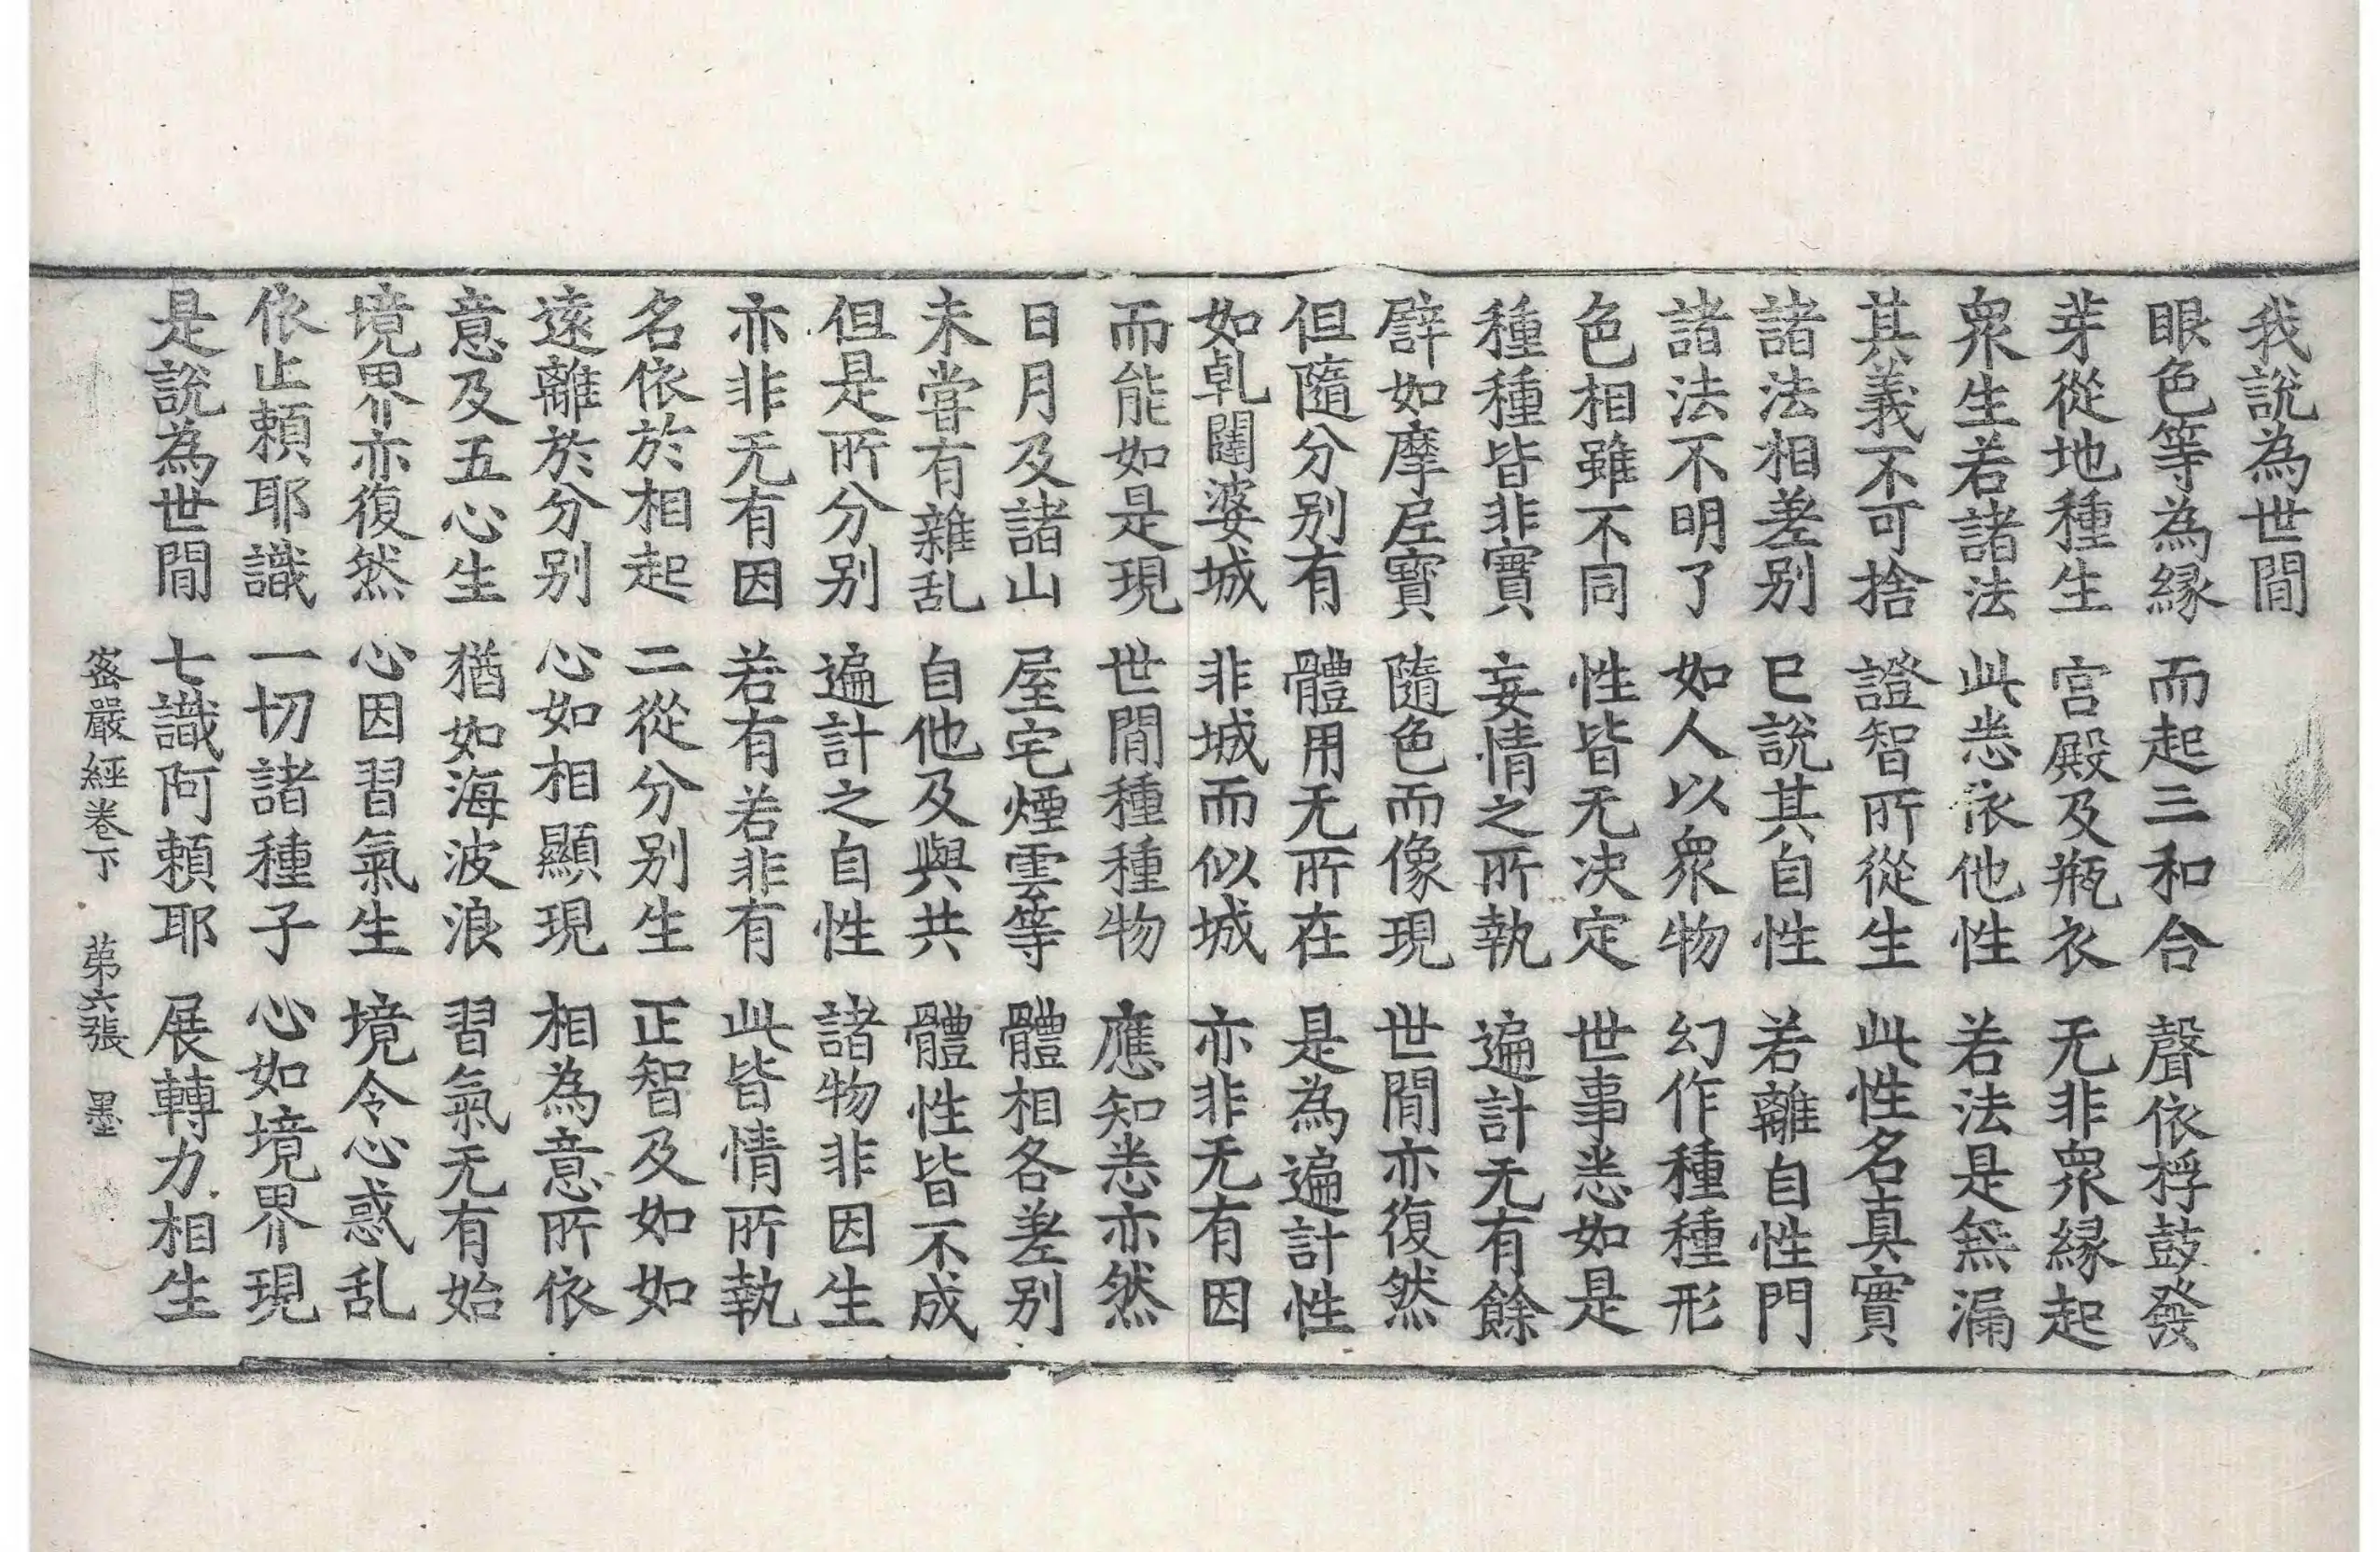 我說為世間
眼色等為縁　而起三和合　聲依桴鼓發
芽從地種生　宫殿及瓶衣　无非衆縁起
衆生若諸法　此悉依他性　若法是無漏
其義不可捨　證智所從生　此性名真實
諸法相差别　已說其自性　若離自性門
諸法不明了　如人以衆物　幻作種種形
色相雖不同　性皆无决定　世事悉如是
種種皆非實　妄情之所執　遍計无有餘
譬如摩尼寶　隨色而像現　世間亦復然
但隨分别有　體用无所在　是為遍計性
如乹闥婆城　非城而似城　亦非无有因
而能如是現　世間種種物　應知悉亦然
日月及諸山　屋宅煙雲等　體相各差别
未嘗有雜乱　自他及與共　體性皆不成
但是所分别　遍計之自性　諸物非因生
亦非无有因　若有若非有　此皆情所執
名依於相起　二從分别生　正智及如如
遠離於分别　心如相顯現　相為意所依
意及五心生　猶如海波浪　習氣无有始
境界亦復然　心因習氣生　境令心惑乱
依止頼耶識　一切諸種子　心如境界現
是說為世間　七識阿頼耶　展轉力相生
宻嚴經卷下　苐六張　墨